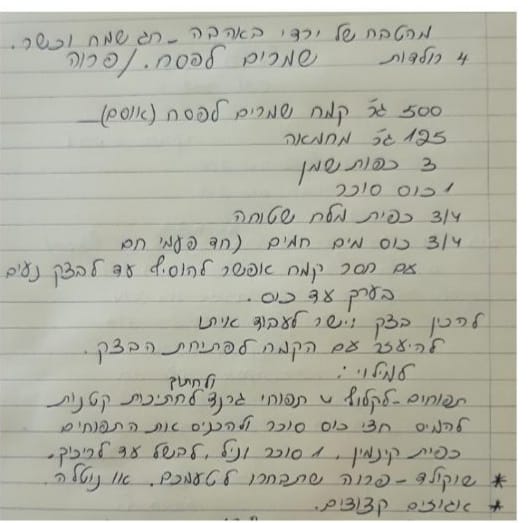 מהטבח של ירדי באהבה - חג שמח וכשר.
4 רולדות שמרים לפסח. / פרוה
500 גר' קמח שמרים לפסח (אוסם)
125 גר' מחמאה
3 כפות שמן
1 כוס סוכר
3/4 כפית מלח שטוחה
3/4 כוס מים חמים (חד פעמי חם
עם חסר קמח אפשר להוסיף עד לבצק נעים
בערך עד כוס.
להכין בצק גישר לעבוד איתו
להיעזר עם הקמח לפתיחת הבצק.
למילוי:
ולחתוך
תפוחים - לקלוף 4 תפוחי גרנד לחתיכות קטנות
להמיס חצי כוס סוכר ולהכניס את התפוחים
כפית קינמון, 1 סוכר וניל, לבשל עד לריכוך.
* שוקולד - פרוה שתבחרו לטעמכם. או נוטלה.
* אגוזים קצוצים.